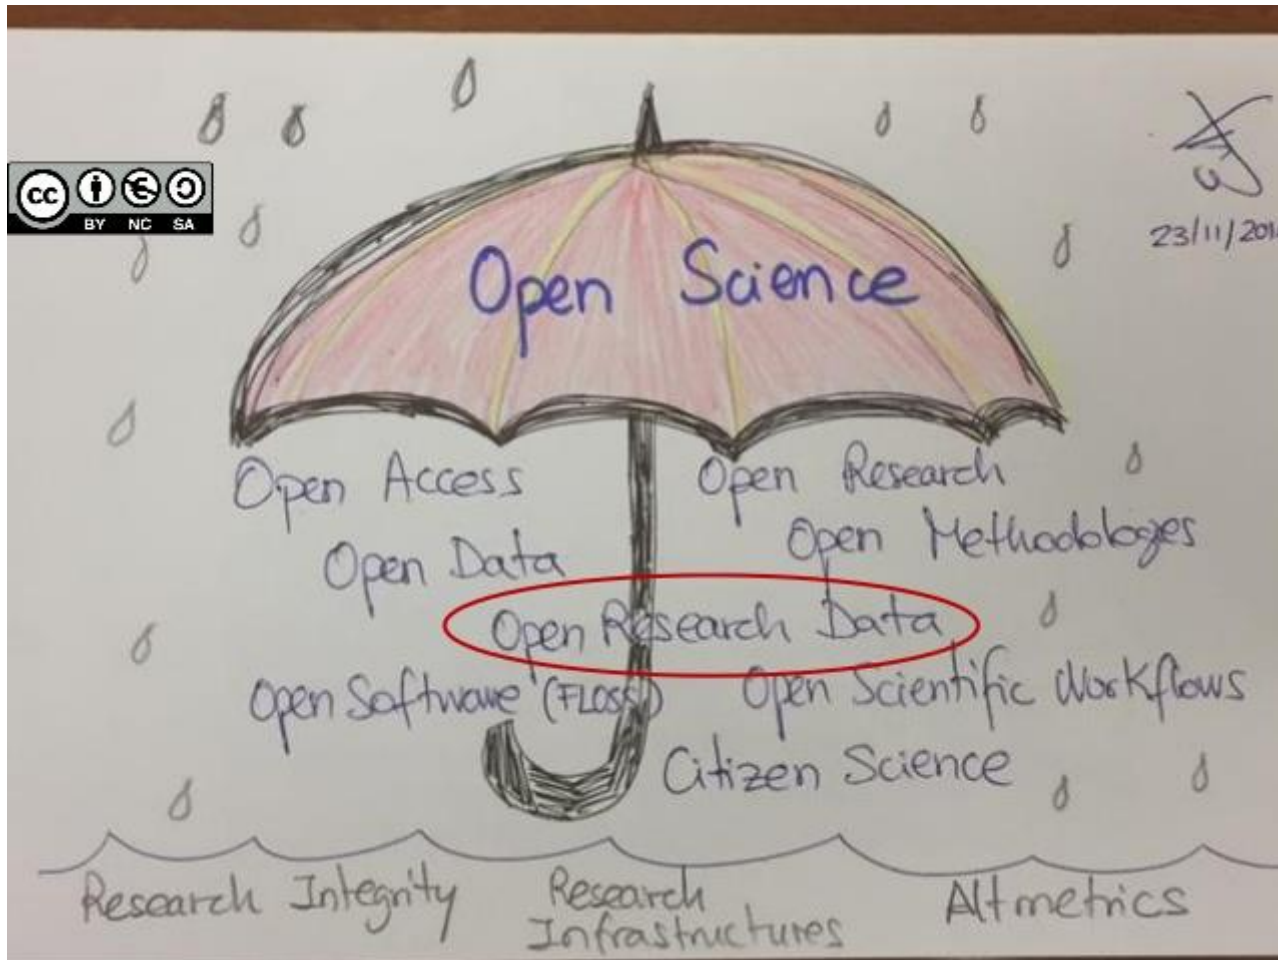 cc
BY NC SA
23/11/201
Open Science
Open Access
Open Research
Open Data
Open Methodologies
Open Research Data
Open Software (FLOSS)
Open Scientific Workflows
Citizen Science
Research Integrity
Research
Infrastructures
Altmetrics